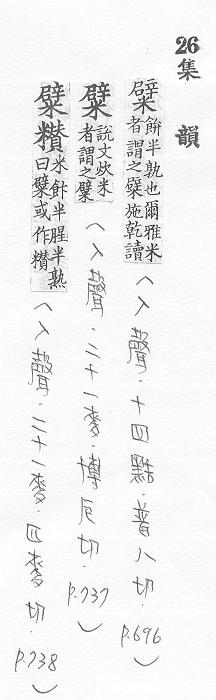 26 集 韻
糪 餅半孰也爾雅米
者謂之糪施乾讀
〈入聲.十四黠.普八切. p.696〉
糪 說文炊米
者謂之糪
〈入聲.二十一麥.博厄切. p.737〉
糪 米飦半腥半熟
曰糪或作
〈入聲.二十一麥.匹麥切. p.738〉